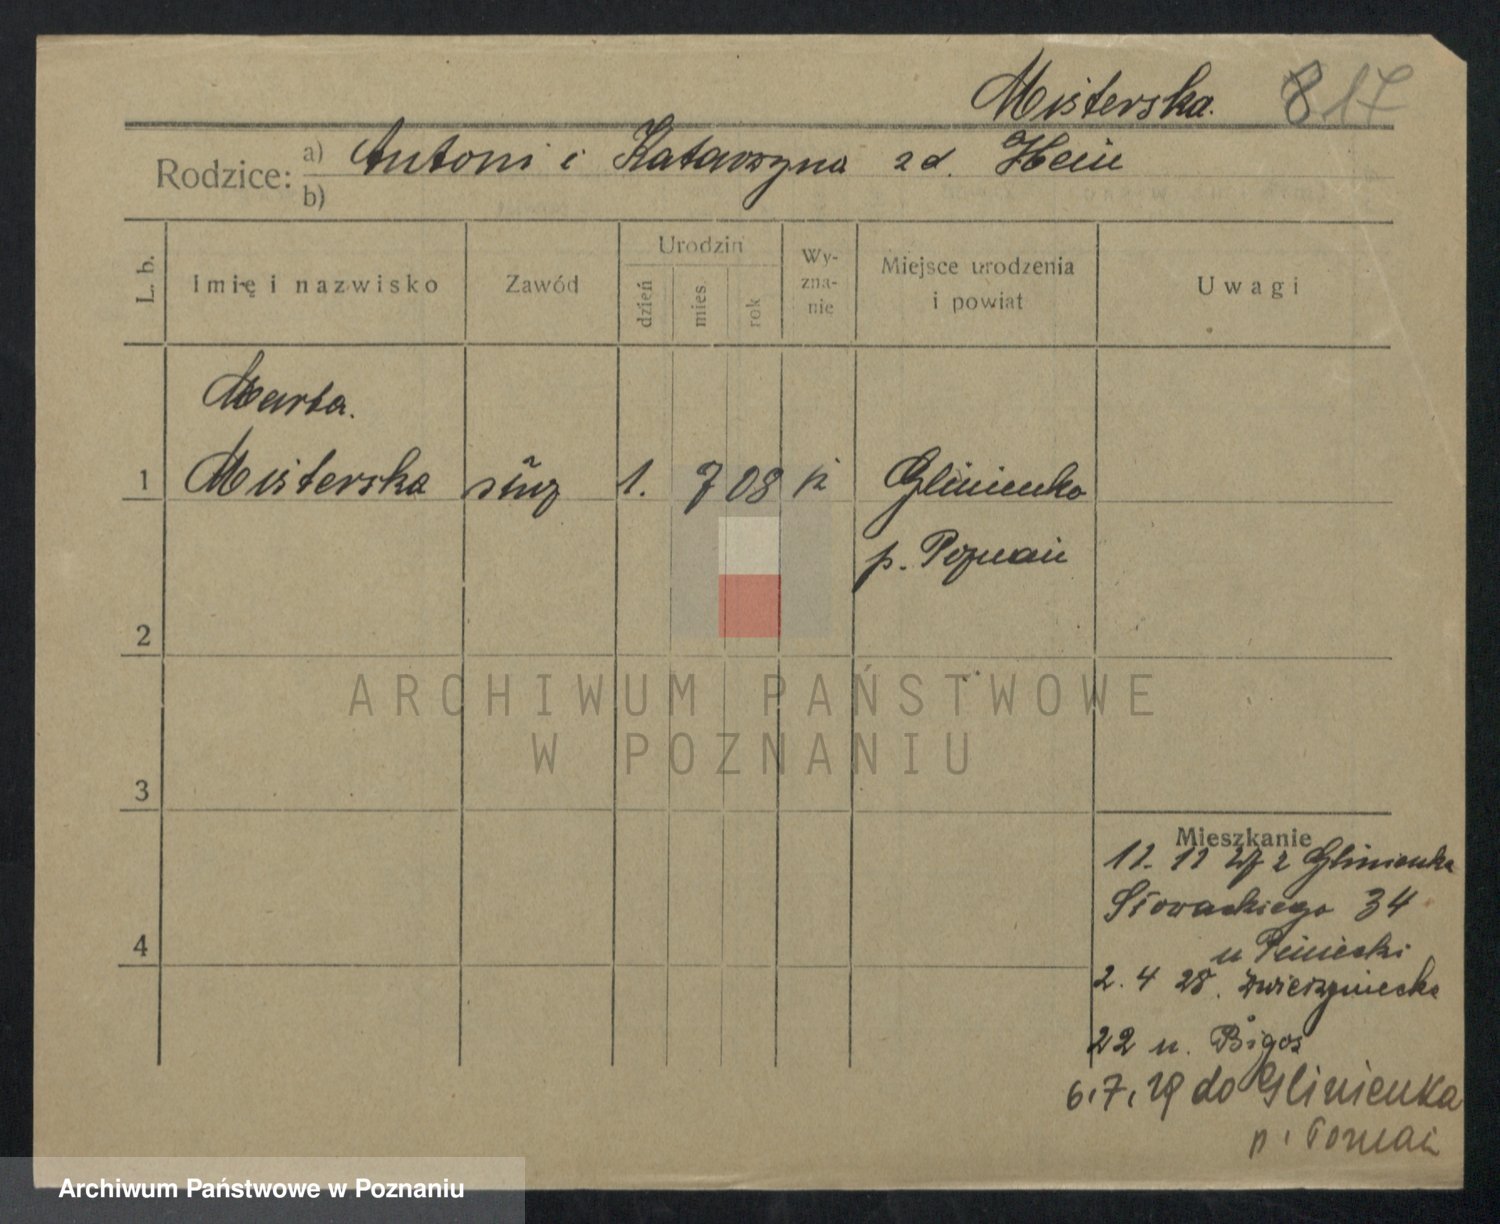 Misterska. 817
Rodzice: a) Antoni i Katarzyna zd. Hein
b)
L. b.
Imię i nazwisko
Zawód
Urodzin
dzień
mies.
rok
Wy-
zna-
nie
Miejsce urodzenia
i powiat
Uwagi
Marta.
1 Misterska służ 1. 7 08 k Glinienko
p. Poznań
2
3
4
ARCHIWUM PAŃSTWOWE
W POZNANIU
Mieszkanie
11. 11 27 z Glinienka
Słowackiego 34
u
2. 4 28. Zwierzyniecka
22 u. Bigos
6.7.29 do Glinienka
p. Poznań
Archiwum Państwowe w Poznaniu